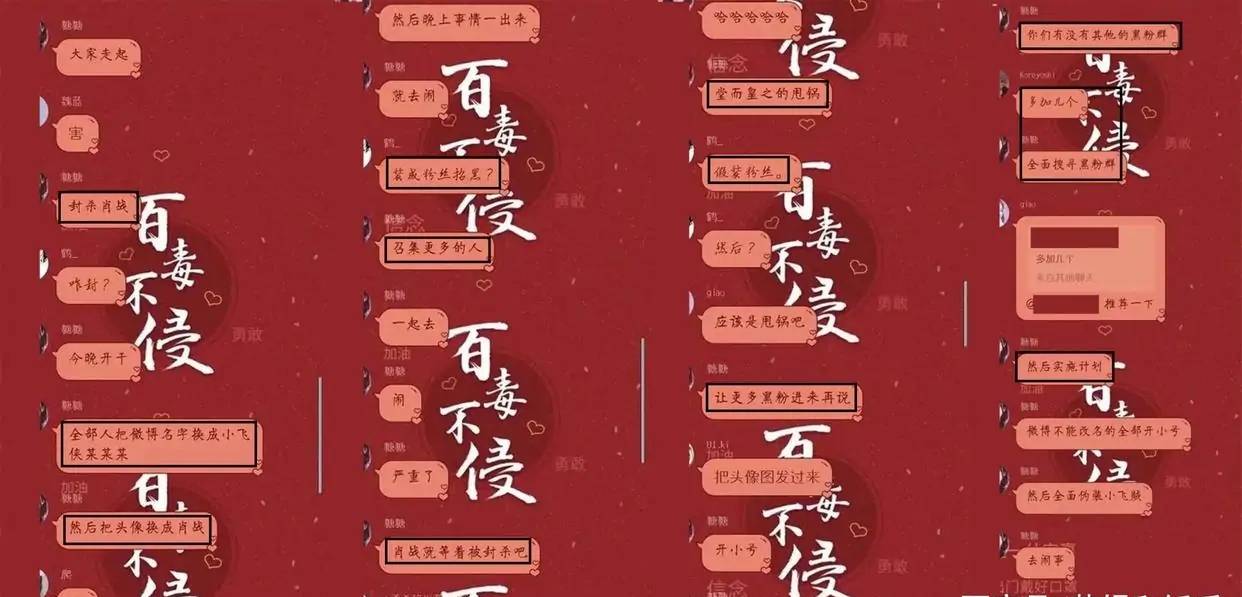 糖糖
大家走起
魏蓝
害
糖糖
封杀肖战
鹤_
咋封？
糖糖
今晚开干
糖糖
全部人把微博名字换成小飞
侠某某某
糖糖
然后把头像换成肖战
爬
百毒不侵
勇敢
加油
百毒不侵
然后晚上事情一出来
糖糖
就去闹
鹤_
装成粉丝招黑？
糖糖
召集更多的人
糖糖
一起去
糖糖
闹
糖糖
严重了
糖糖
肖战就等着被封杀吧
百毒不侵
勇敢
信念
加油
百毒不侵
勇敢
百
哈哈哈哈哈
堂而皇之的甩锅
鹤_
假装粉丝。
鹤_
然后？
giao
应该是甩锅吧
糖糖
让更多黑粉进来再说
把头像图发过来
糖糖
开小号
侵
勇敢
信念
加油
百毒不侵
勇敢
加油
百毒不侵
勇敢
信念
糖糖
你们有没有其他的黑粉群
Koreyoshi
多加几个
糖糖
全面搜寻黑粉群
giao
多加几个
来自其他聊天
@
推荐一下
糖糖
然后实施计划
糖糖
微博不能改名的全部开小号
糖糖
然后全面伪装小飞侠
糖糖
去闹事
百毒不侵
勇敢
加油
勇敢
门戴好口罩